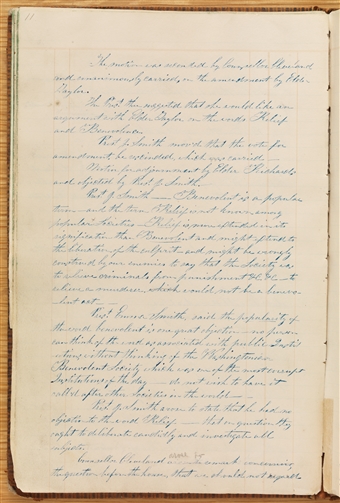 11
The motion was seconded by Counsellor Cleveland
and unanimously carried, on the amendment by Elder
Taylor.
The Prest. then suggested that she would like an
argument with Elder Taylor on the words Relief
and Benevolence.
Prest. J. Smith moved that the vote for
amendment be rescinded, which was carried—
Motion for adjournment by Elder Richards
and objected by Prest. J. Smith.
Prest. J. Smith— Benevolent is a popular
term— and the term Relief is not known among
popular Societies— Relief is more extended in its
signification than Benevolent and might extend to
the liberation of the culprit— and might be wrongly
construed by our enemies to say that the Society was
to relieve criminals from punishment &c. &c— to
relieve a murderer, which would not be a benevo-
lent act—
Prest. Emma Smith, said the popularity of
the word benevolent is one great objection— no person
can think of the word as associated with public Insti-
tutions, without thinking of the Washingtonian
Benevolent Society which was one of the most corrupt
Institutions of the day— do not wish to have it
called after other Societies in the world—
Prest. J. Smith arose to state that he had no
objection to the word Relief— that on question they
ought to deliberate candidly and investigate all
subjects.
Counsellor Cleveland arose to remark concerning
the question before the house, that we should not regard